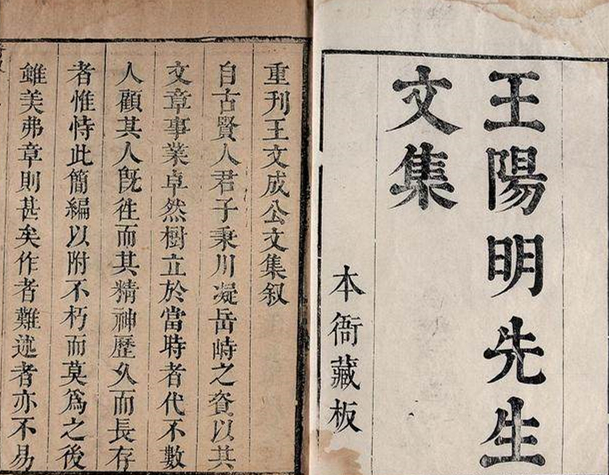 王陽明先生
文集
本衙藏板
重刊王文成公文集叙
自古賢人君子秉川凝岳峙之資以其
文章事業卓然樹立於當時者代不數
人顧其人旣徃而其精神歷久而長存
者惟恃此簡編以附不朽而莫為之後
雖美弗章則甚矣作者難述者亦不易